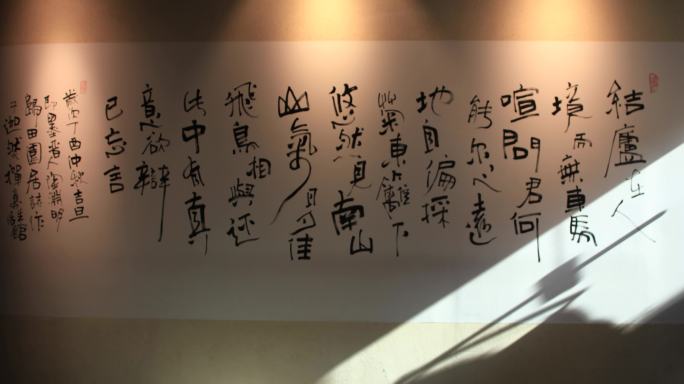 結廬在人
境而無車馬
喧問君何
能尔心遠
地自偏採
菊東籬下
悠然見南山
山氣日夕佳
飛鳥相與还
此中有真
意欲辯
已忘言
歲次丁酉仲秋吉旦
陶淵明
歸田園居詩作